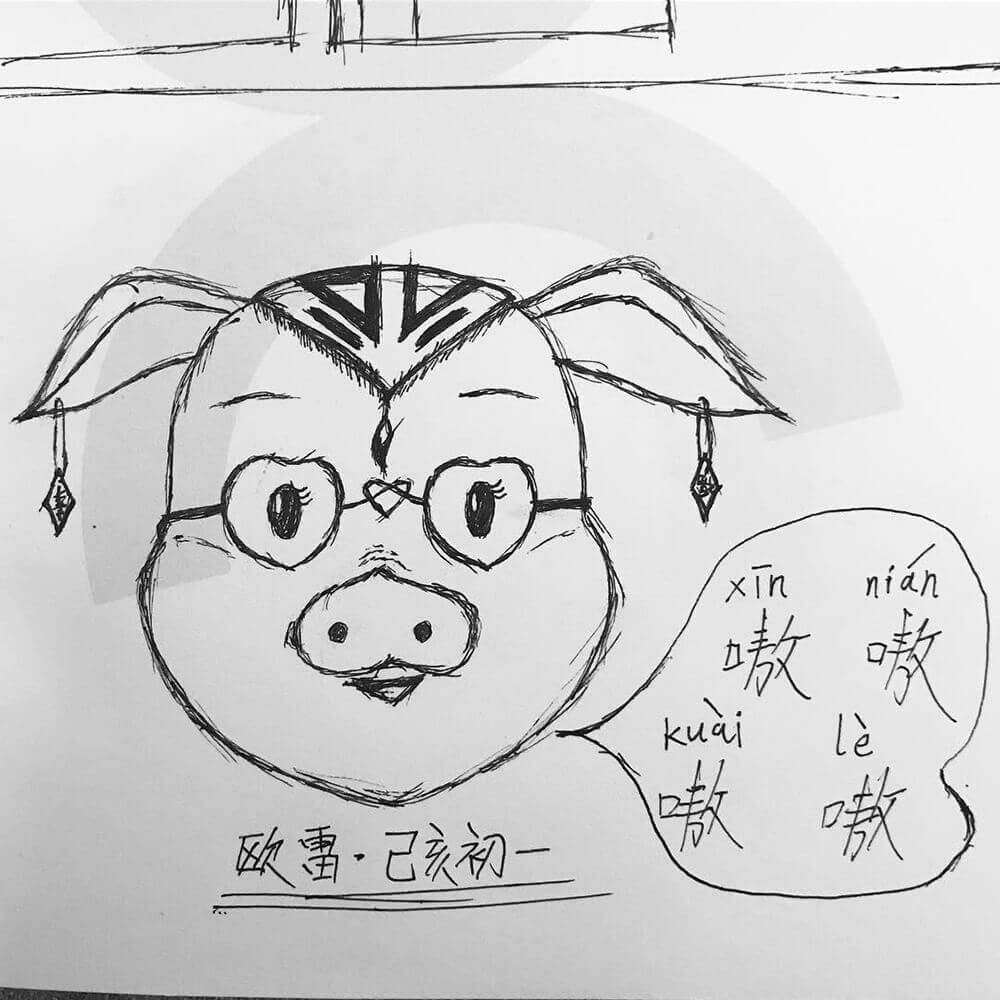 xīn nián
嗷 嗷
kuài lè
嗷 嗷
欧雷·己亥初一